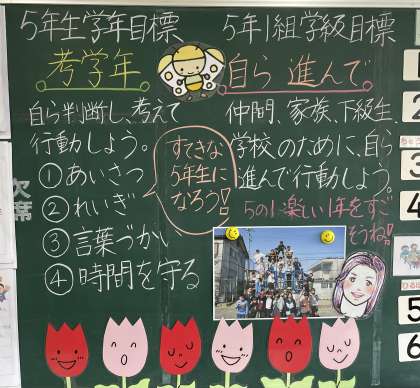 5年生学年目標
考学年。
自ら判断し、考えて
行動しよう。
①あいさつ
②れいぎ
③言葉づかい
④時間を守る
すてきな
5年生に
なろう!!
5年1組学級目標
自ら進んで
仲間、家族、下級生、
学校のために、自ら
進んで行動しよう。
5の1楽しい1年をすご
そうね!!
欠席
2
3
4
5
6